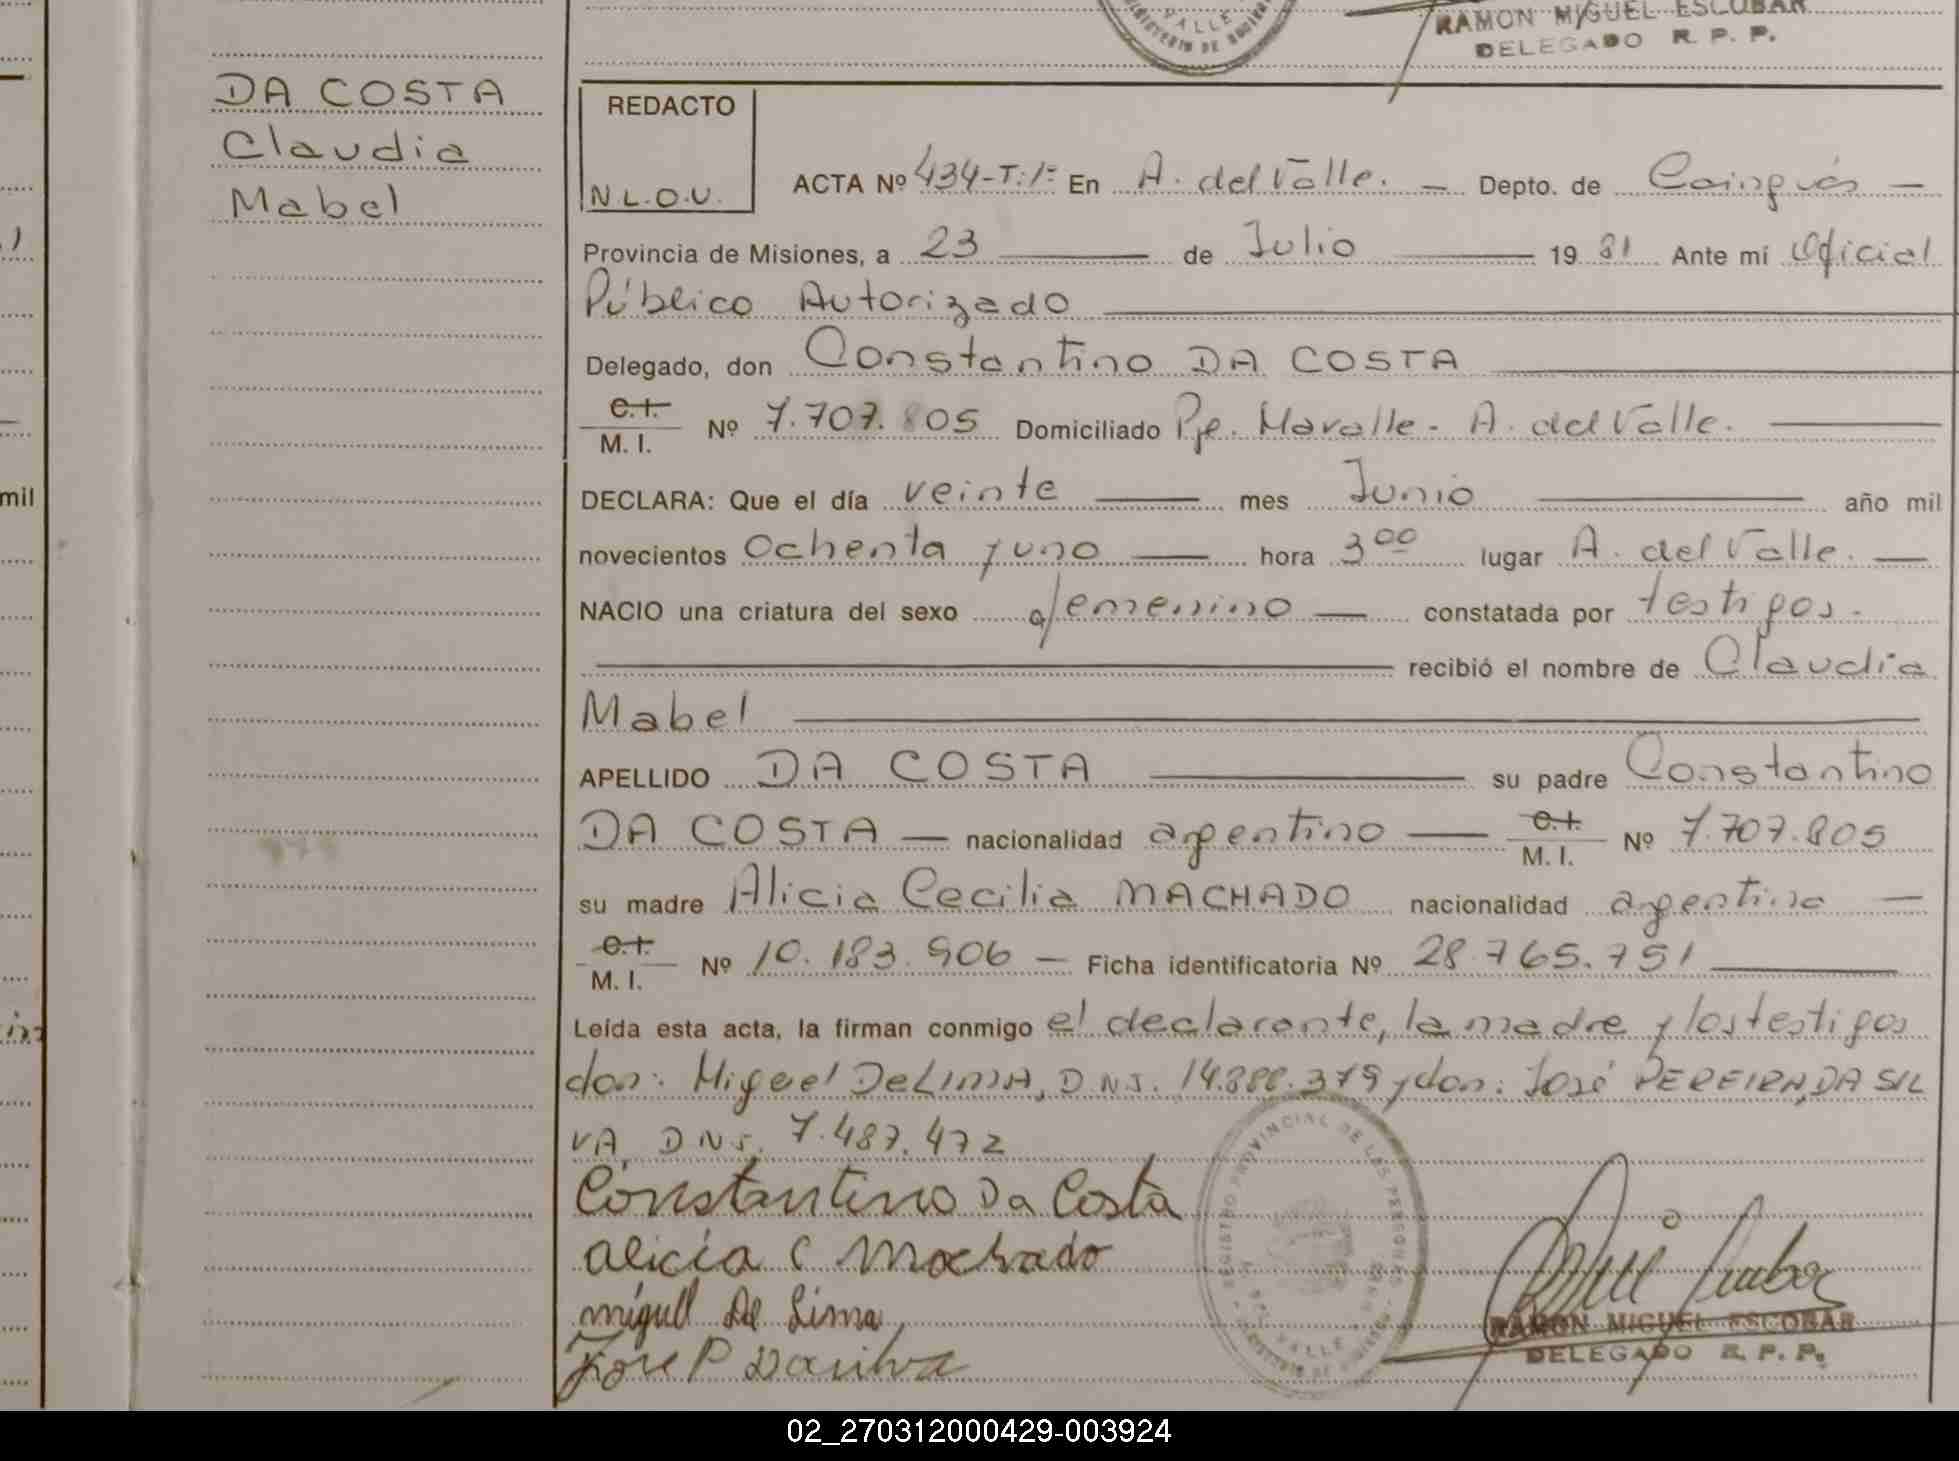 RAMON MIGUEL ESCOBAR
DELEGADO R. P. P.
DA COSTA
Claudia
Mabel
REDACTO
N.L.O.U.
ACTA Nº 434-T:1º En A. del Valle. — Depto. de Cainguás —
Provincia de Misiones, a 23 de Julio 19 81 Ante mi Oficial
Público Autorizado
Delegado, don Constantino DA COSTA
C.I.
M. I. Nº 7.707.805 Domiciliado Pje. Mavalle - A. del Valle.
DECLARA: Que el día veinte mes Junio año mil
novecientos Ochenta y uno hora 3 00 lugar A. del Valle.
NACIO una criatura del sexo femenino constatada por testigos.
recibió el nombre de Claudia
Mabel
APELLIDO DA COSTA su padre Constantino
DA COSTA — nacionalidad argentino — C.I.
M. I. Nº 7.707.805
su madre Alicia Cecilia MACHADO nacionalidad argentina —
C.I.
M. I. Nº 10.183.906 — Ficha identificatoria Nº 28.765.751
Leída esta acta, la firman conmigo el declarante, la madre y los testigos
don: Miguel De LIMA, D.N.I. 14.888.379 y don: José PEREIRA DA SIL
VA, D.N.I. 7.487.472
Constantino Da Costa
alicia C Machado
miguel De Lima
Jose P Dasilva
REGISTRO PROVINCIAL DE LAS PERSONAS
VALLE
RAMON MIGUEL ESCOBAR
DELEGADO R. P. P.
mil
02_270312000429-003924